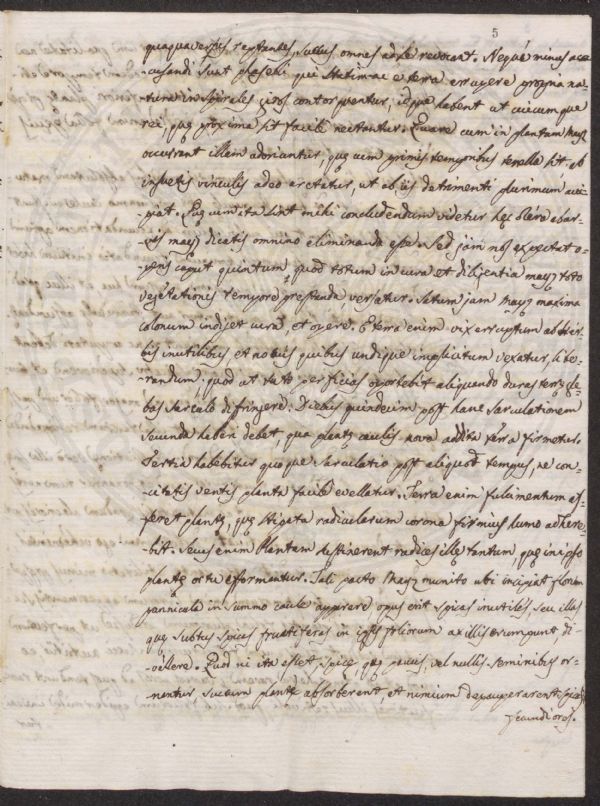 5
quaquaversus reptantes, succus omnes ad se revocant. Neque minus ac-
cusandi sunt phaseoli qui statim ac e terra erupere propria na-
tura in spirales gyros contorquentur, idque habent ut cuicumque
rei, quę proxima sit facile nectantur. Quare cum in plantam Mayz
occurrant illam adoriantur, quę cum primis temporibus tenella sit, ab
infestis vinculis adeo arctatur, ut ab iis detrimenti plurimum acci-
piat. Quę cum ita sint mihi concludendum videtur hęc olera ab ar-
vis mayz dicatis omnino eliminanda esse. Sed jam nos expectat o-
peris caput quintum, quod totum in cura et diligentia mayz toto
vegetationis tempore pręstanda, versatur. Satum jam mayz maxima
colonum indiget cura, et opere. E terra enim vix erruptum ab her-
bis inutilibus, et noxiis quibus undique implicitum vexatur, libe-
randum: quod ut rite perficias oportebit aliquando duras terrę gle-
bas sarculo difringere. Diebus quindecim post hanc sarculationem
secunda haberi debet, qua plantę caulis nova addita terra firmetur.
Tertia habebitur quoque sarculatio post aliquod tempus, ne con-
citatis ventis planta facile evellatur. Terra enim fulcimentum af-
feret plantę, quę stipata radicularum corona firmius humo adhere-
bit. Secus enim plantam sustinerent radices illę tantum, quę in ipso
plantę ortu efformantur. Tali pacto Mayz munito ubi incipiat florum
pannicula in summo caule apparere opus erit spicas inutiles, seu illas
quę subtus spicas fructiferas in ipsis foliorum axillis erumpunt di-
vellere. Quod ni ita esset spicę, quę paucis, vel nullis seminibus or-
nantur, succum plantę absorberent, et nimium depauperarent spicas
fecundiores.